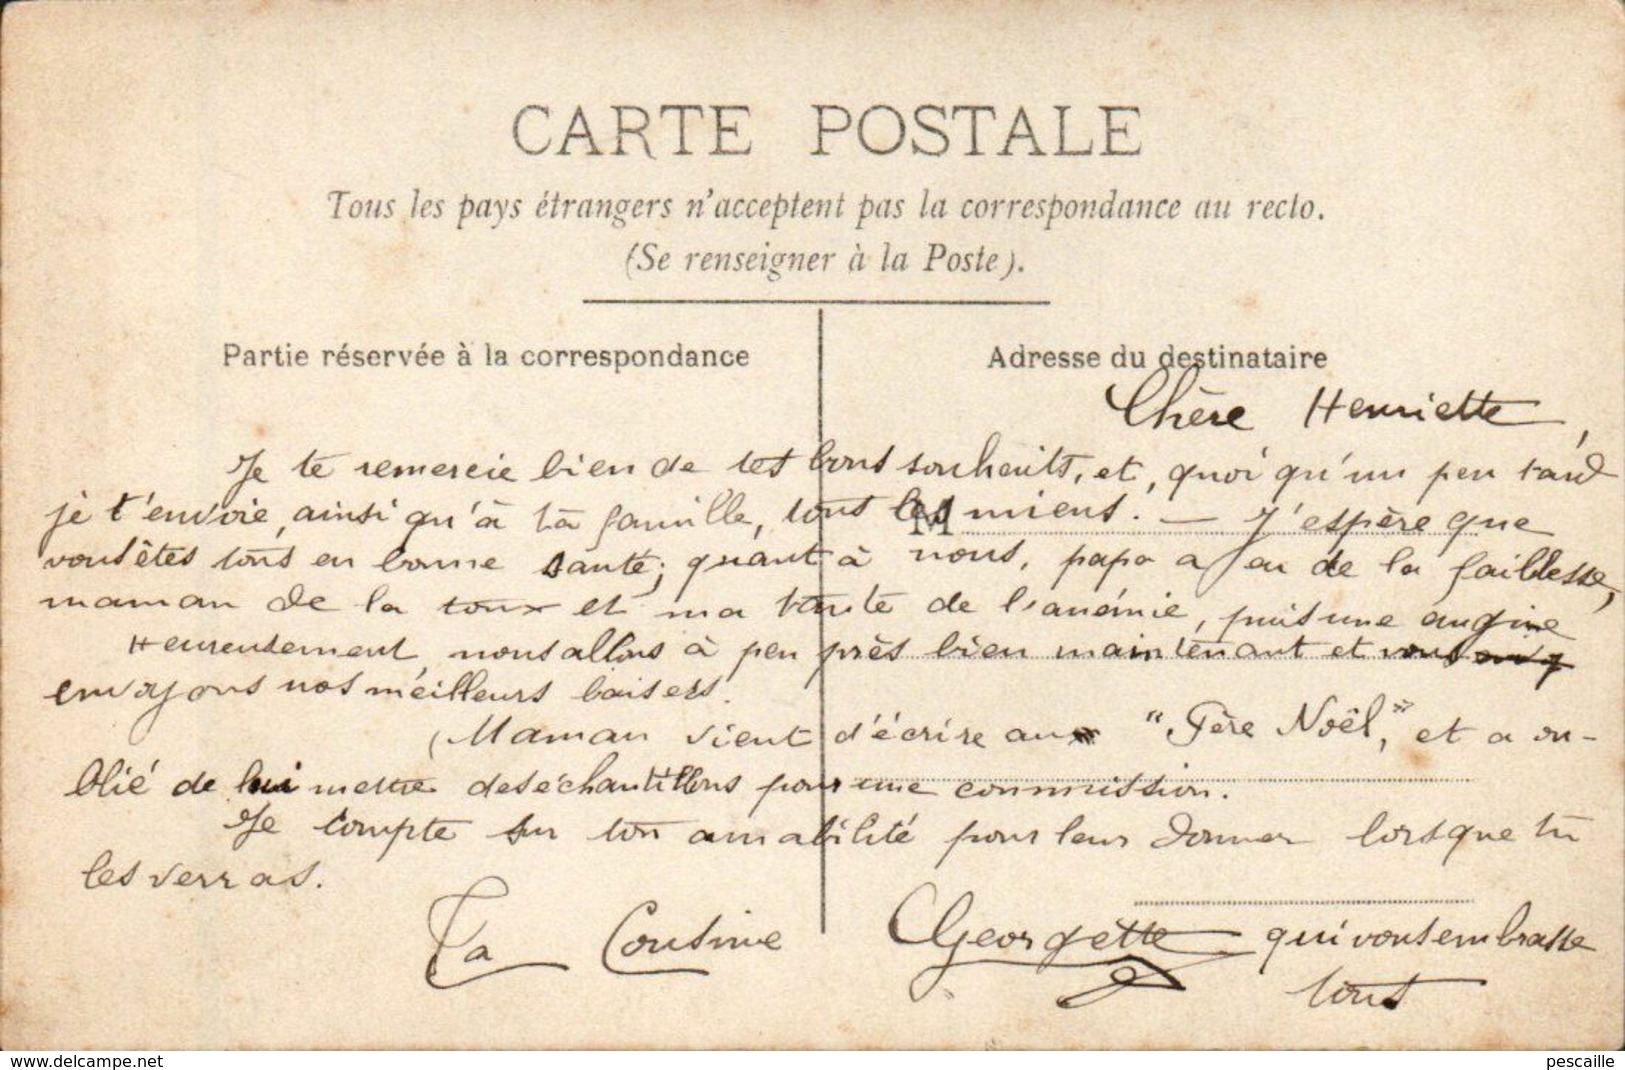 CARTE POSTALE
Tous les pays étrangers n'acceptent pas la correspondance au recto.
(Se renseigner à la Poste).
Partie réservée à la correspondance
Adresse du destinataire
Chère Henriette,
Je te remercie bien de tes bons souhaits, et, quoi qu'un peu tard
je t'envoie, ainsi qu'à ta famille, tous les miens. — J'espère que
vous êtes tous en bonne santé; quant à nous, papa a eu de la faiblesse,
maman de la toux et ma tante de l'anémie, puis une angine
Heureusement, nous allons à peu près bien maintenant et vous
envoyons nos meilleurs baisers.
(Maman vient d'écrire au "Père Noël", et a ou-
blié de lui mettre des échantillons pour une commission.
Je compte sur ton amabilité pour leur donner lorsque tu
les verras.
Ta Cousine Georgette qui vous embrasse
tous
M
www.delcampe.net
pescaille